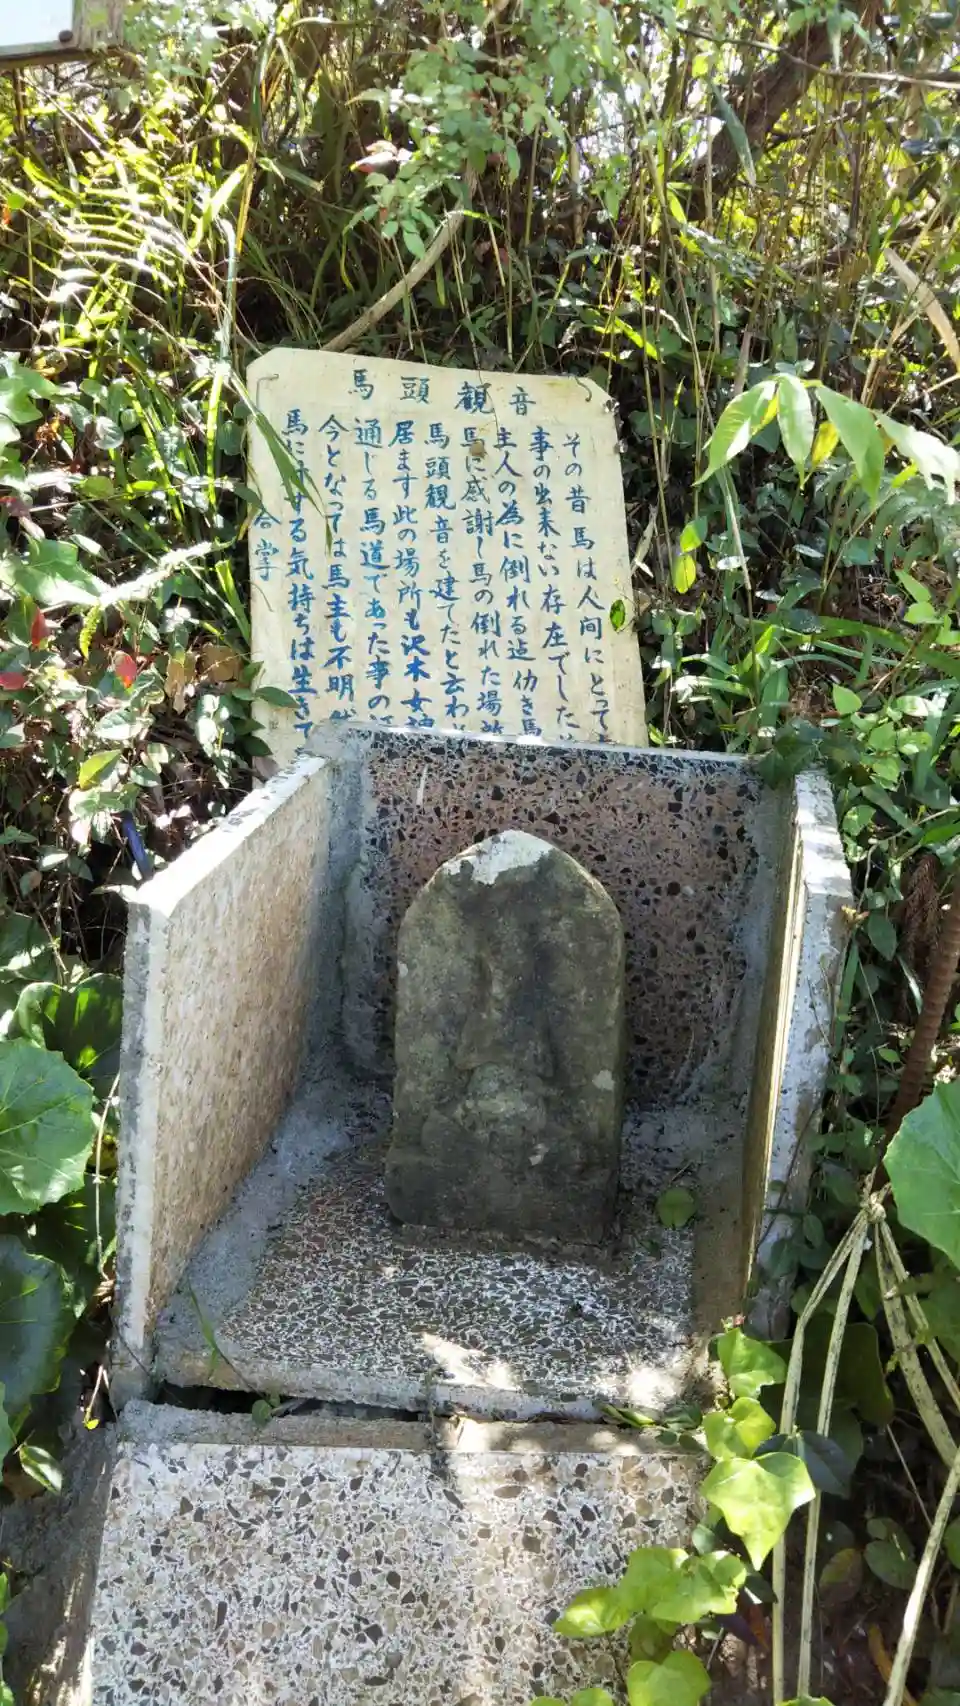 馬頭観音
その昔馬は人間にとって
事の出来ない存在でした
主人の為に倒れる迠仂き馬
馬に感謝し馬の倒れた場
馬頭観音を建てたと云わ
居ます此の場所も沢木女神
通じる馬道であった事の
今となっては馬主も不明
馬に する気持ちは生きて
合掌